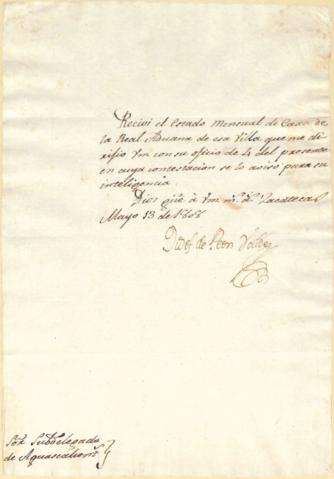 Recivi el Estado Mensual de Caxa de
la Real Aduana de esa Villa, que me di-
rigio Vm con su oficio de 4 del presente
en cuya contestacion se lo aviso para su
inteligencia.
Dios gûe à Vm m.s a.s Zacatecas
Mayo 13 de
de Leon Valdes
Sor Subdelegado
de Aguascalient.s